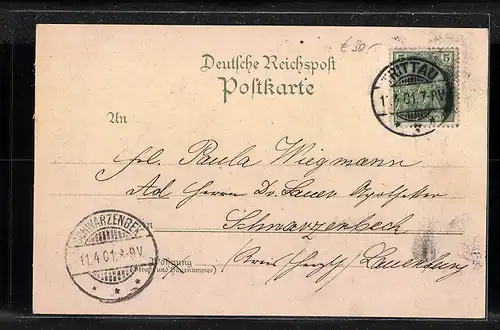 € 30.-
Deutsche Reichspost
Postkarte
5
TRITTAU
11.4.01.7-8V.
An
Frl. Paula Wiegmann
Ad Herrn Dr. Lauer Apotheker
Schwarzenbeck
SCHWARZENBEK
11.4.01.8-9V.
Wohnung
(Straße und Hausnummer)
Kreis Herzgth Lauenburg